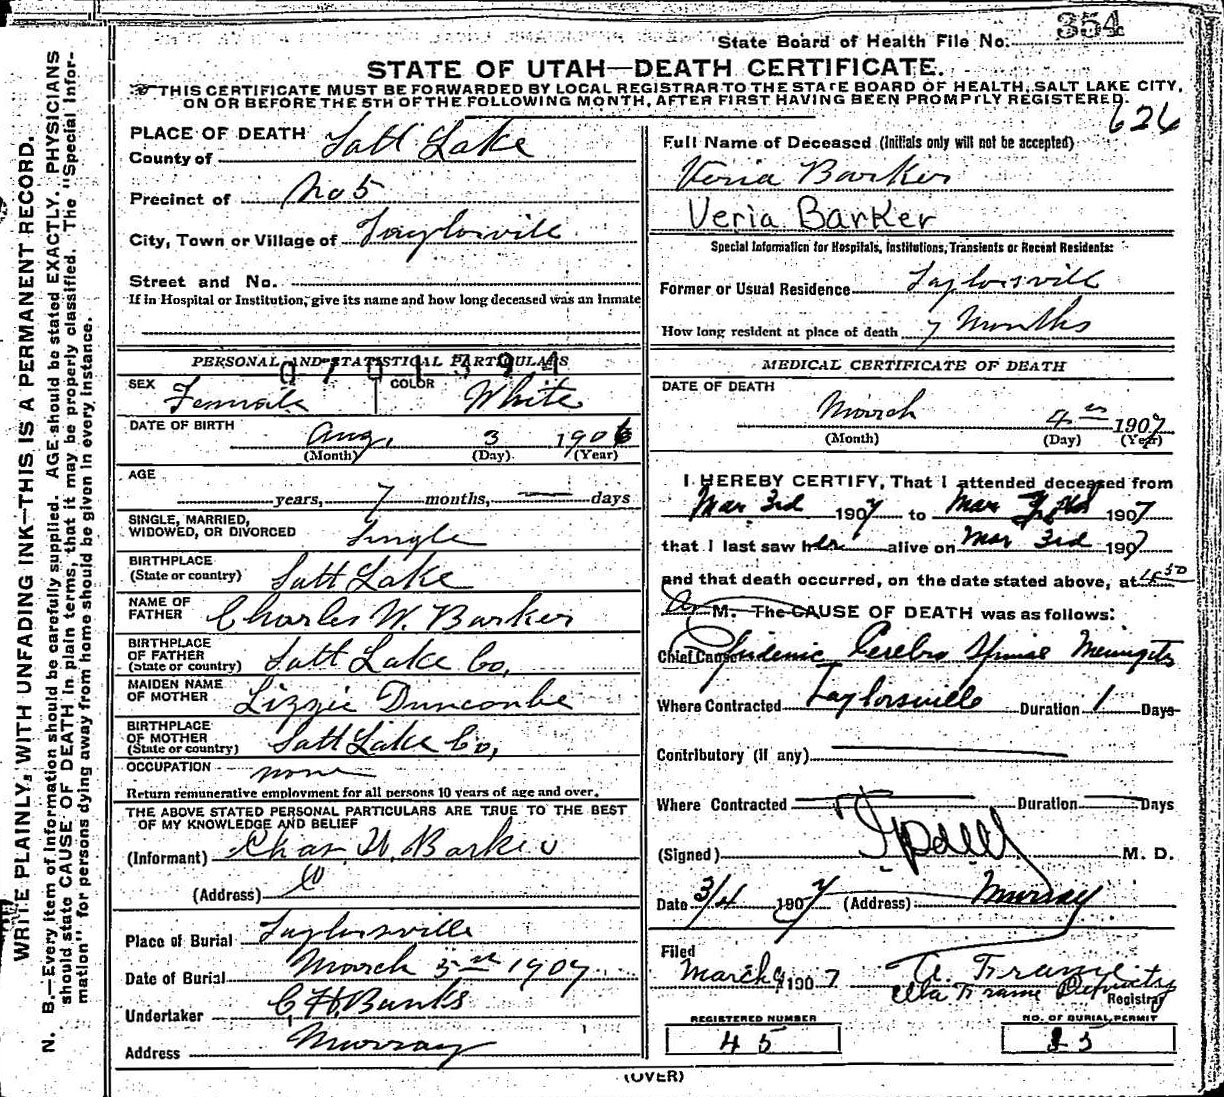 354
State Board of Health File No.
STATE OF UTAH—DEATH CERTIFICATE.
THIS CERTIFICATE MUST BE FORWARDED BY LOCAL REGISTRAR TO THE STATE BOARD OF HEALTH, SALT LAKE CITY,
ON OR BEFORE THE 5TH OF THE FOLLOWING MONTH, AFTER FIRST HAVING BEEN PROMPTLY REGISTERED.
626
WRITE PLAINLY, WITH UNFADING INK—THIS IS A PERMANENT RECORD.
N. B.—Every item of information should be carefully supplied. AGE should be stated EXACTLY. PHYSICIANS
should state CAUSE OF DEATH in plain terms, that it may be properly classified. The "Special Infor-
mation" for persons dying away from home should be given in every instance.
PLACE OF DEATH
County of Salt Lake
Precinct of No 5
City, Town or Village of Taylorsvill
Street and No.
If in Hospital or Institution, give its name and how long deceased was an inmate
PERSONAL AND STATISTICAL PARTICULARS
SEX Female COLOR White
DATE OF BIRTH Aug. 3 1906
(Month) (Day) (Year)
AGE
years, 7 months, — days
SINGLE, MARRIED,
WIDOWED, OR DIVORCED Single
BIRTHPLACE
(State or country) Salt Lake
NAME OF
FATHER Charles W. Barker
BIRTHPLACE
OF FATHER
(State or country) Salt Lake Co,
MAIDEN NAME
OF MOTHER Lizzie Duncombe
BIRTHPLACE
OF MOTHER
(State or country) Salt Lake Co,
OCCUPATION none
Return remunerative employment for all persons 10 years of age and over.
THE ABOVE STATED PERSONAL PARTICULARS ARE TRUE TO THE BEST
OF MY KNOWLEDGE AND BELIEF
(Informant) Chas. W. Barker
(Address)
Place of Burial Taylorsville
Date of Burial March 5th 1907
Undertaker C H Banks
Address Murray
Full Name of Deceased (Initials only will not be accepted)
Veria Barker
Veria Barker
Special Information for Hospitals, Institutions, Transients or Recent Residents:
Former or Usual Residence Taylorsvill
How long resident at place of death 7 Months
MEDICAL CERTIFICATE OF DEATH
DATE OF DEATH
March 4th 1907
(Month) (Day) (Year)
I HEREBY CERTIFY, That I attended deceased from
Mar 3rd 1907 to Mar 1907
that I last saw her alive on Mar 3rd 1907
and that death occurred, on the date stated above, at
A M. The CAUSE OF DEATH was as follows:
Chief Cause Epidemic Cerebro Spinal Meningitis
Where Contracted Taylorsville Duration 1 Days
Contributory (if any)
Where Contracted Duration Days
(Signed) M. D.
Date 3/4 1907 (Address) Murray
Filed
March 9 1907 A. Frame
Ella Frame Deputy
Registrar
REGISTERED NUMBER NO. OF BURIAL PERMIT
45
(OVER)